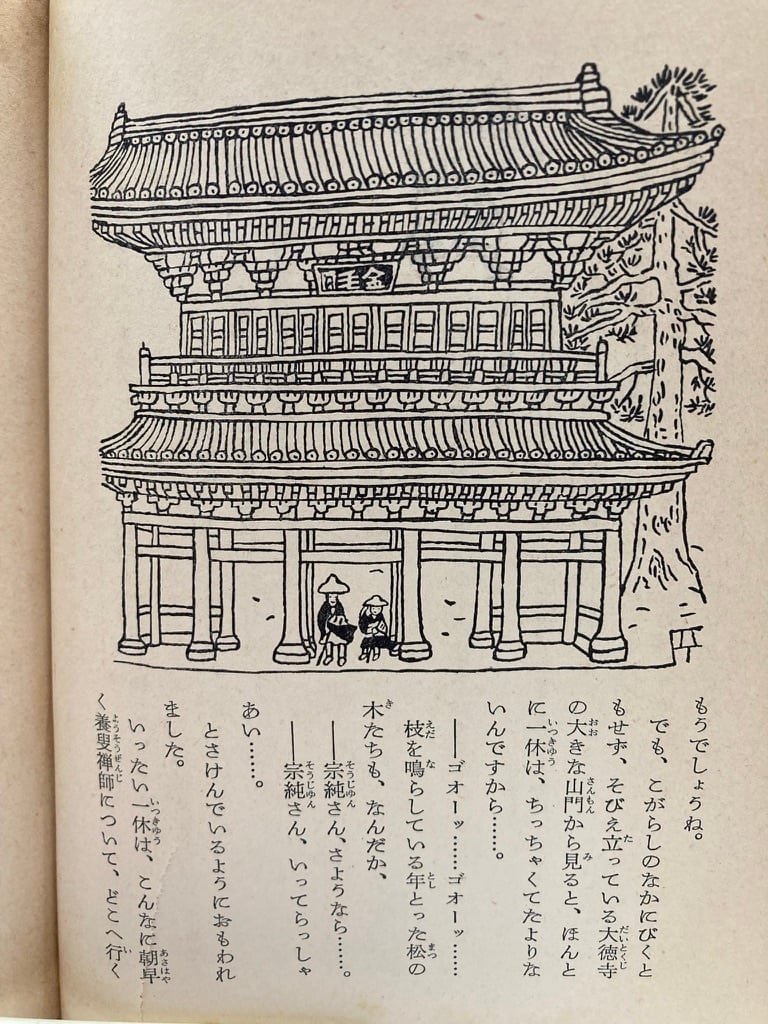 金毛
もうでしょうね。
でも、こがらしのなかにびくと
もせず、そびえ立っている大徳寺
の大きな山門から見ると、ほんと
に一休は、ちっちゃくてたよりな
いんですから……。
──ゴオーッ……ゴオーッ……
枝を鳴らしている年とった松の
木たちも、なんだか、
──宗純さん、さようなら……。
──宗純さん、いってらっしゃ
あい……。
とさけんでいるようにおもわれ
ました。
いったい一休は、こんなに朝早
く養叟禅師について、どこへ行く